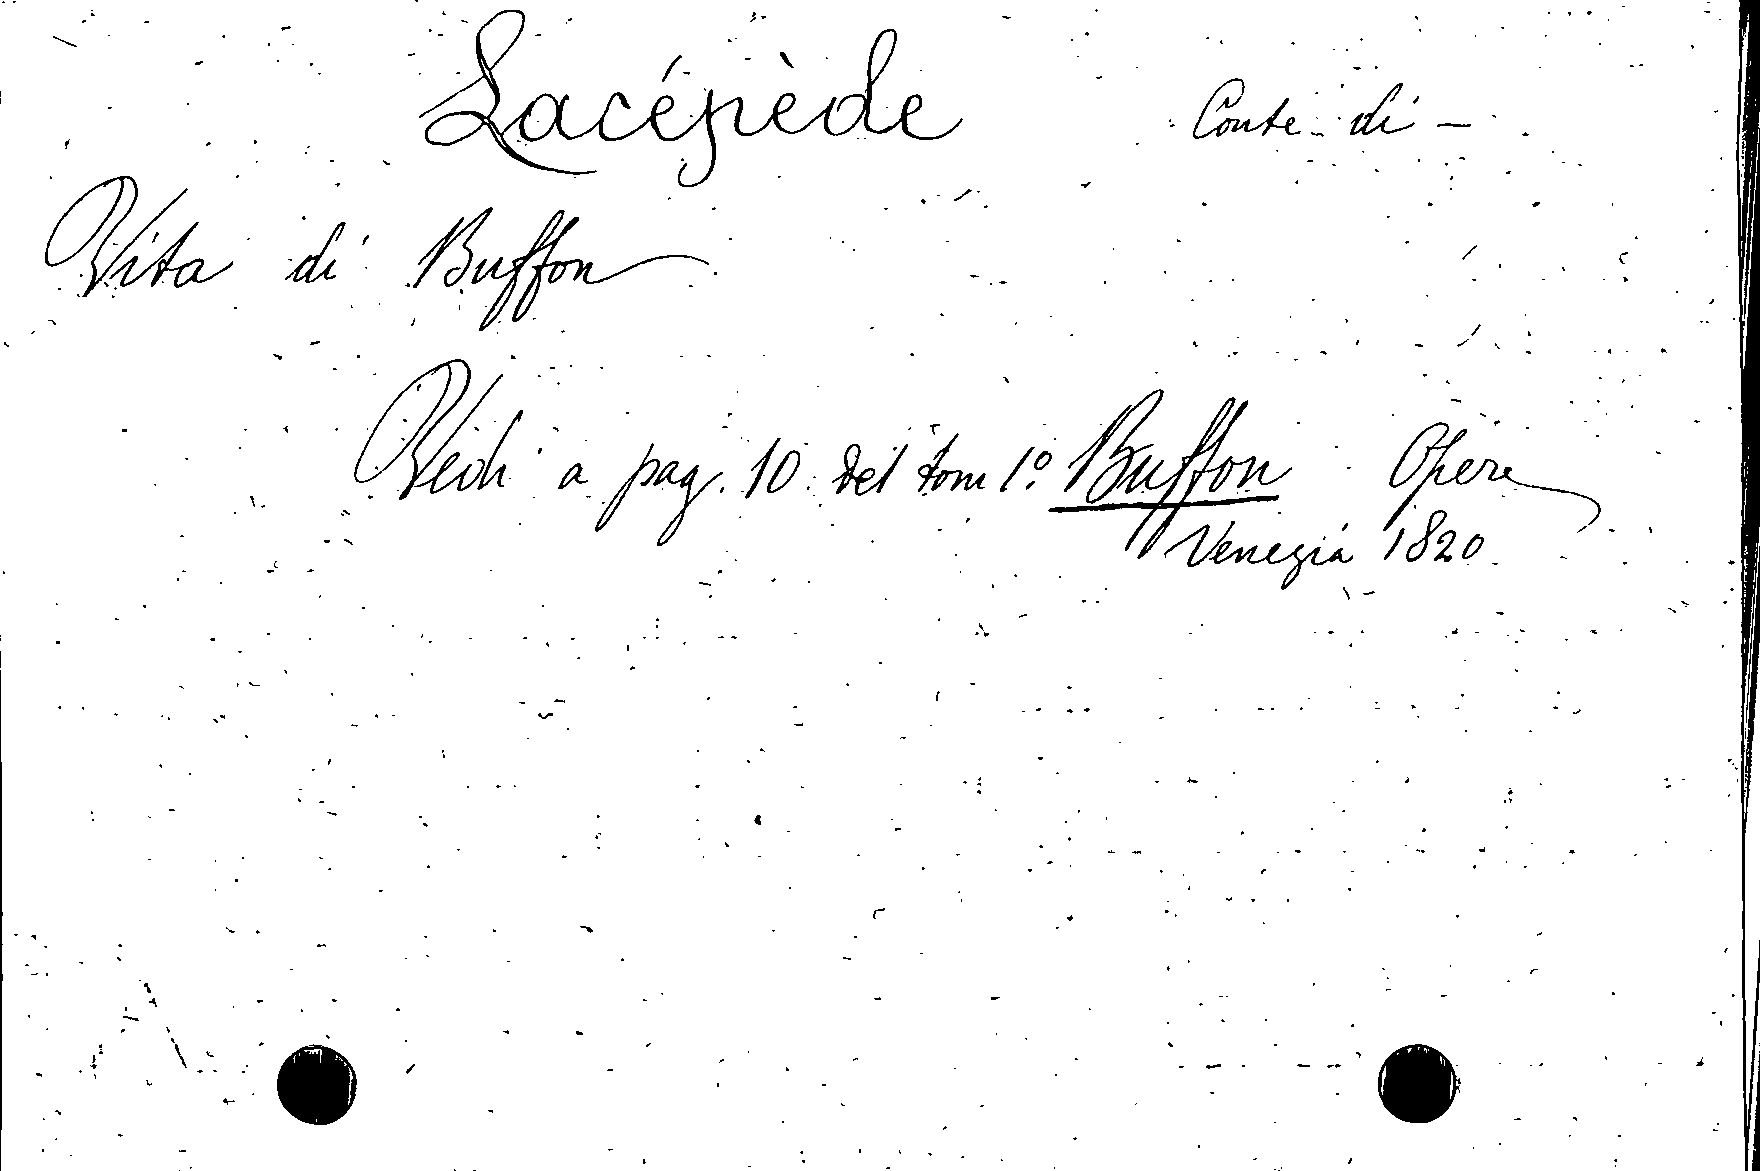 Lacépède Conte di –
Vita di Buffon
Vedi a pag. 10 del tom 1º Buffon Opere
Venezia 1820